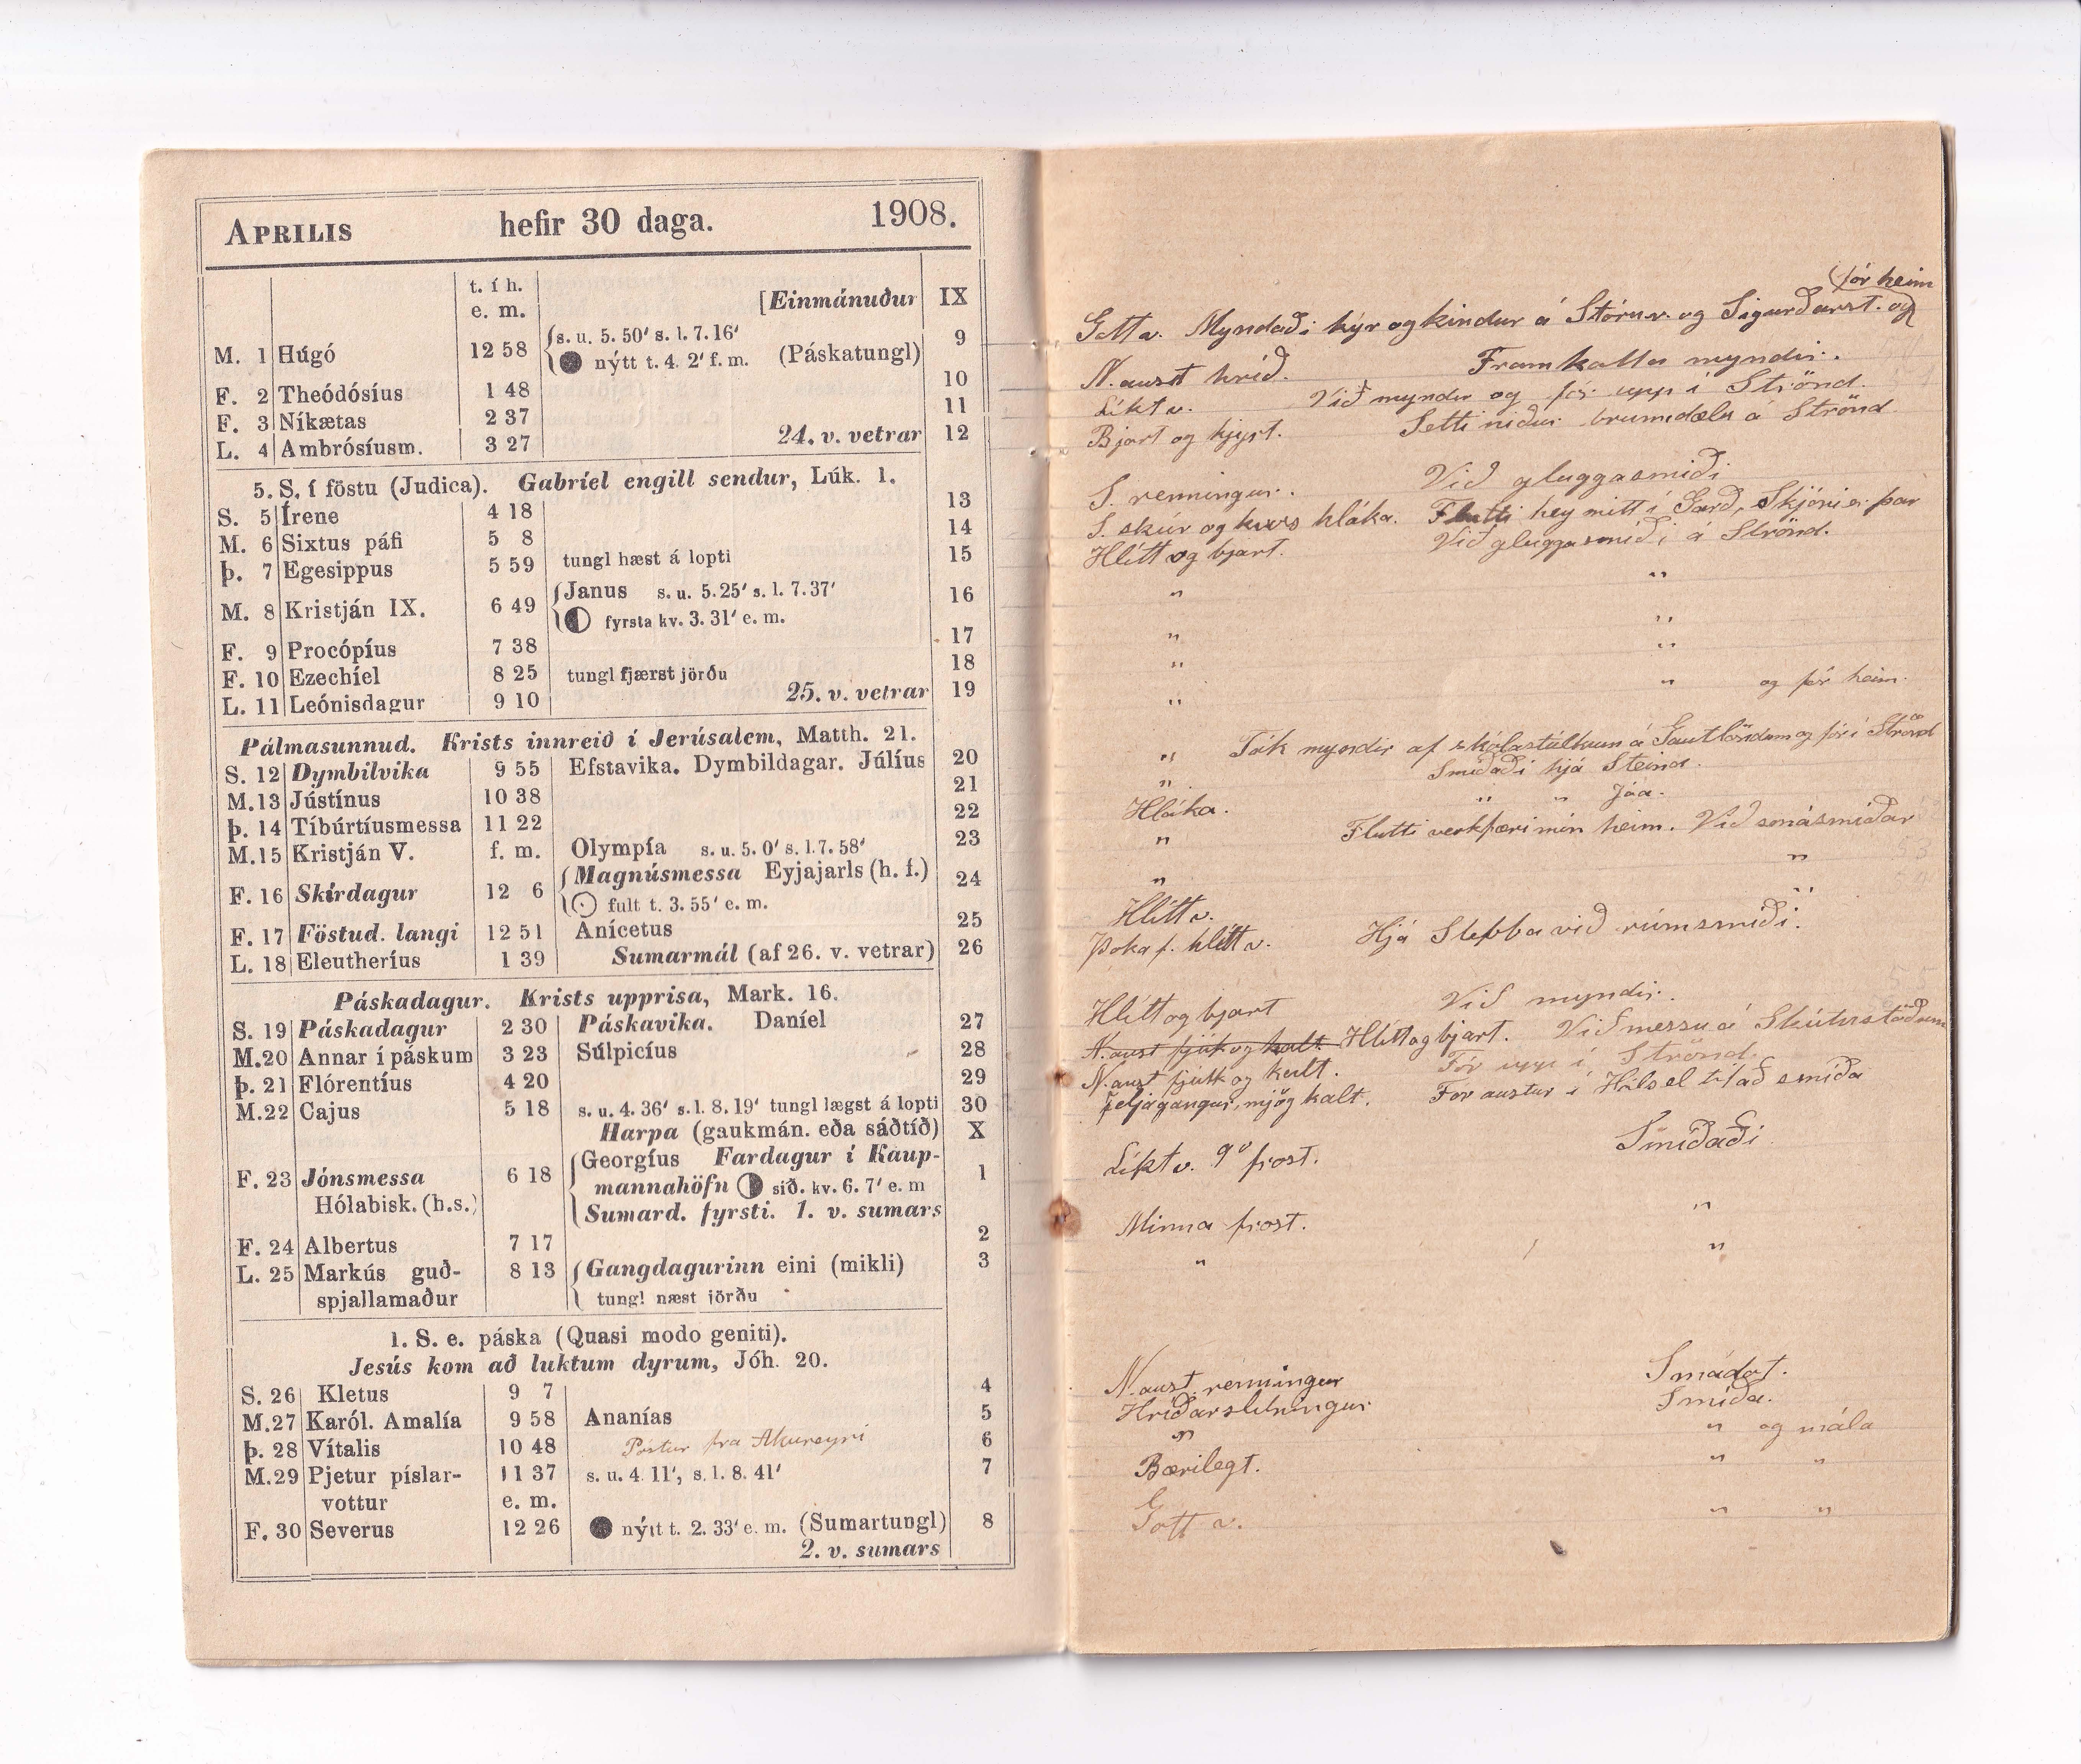 APRILIS hefir 30 daga. 1908.
t. í h.
e. m. [Einmánuður IX
M. 1 Húgó 12 58 s. u. 5. 50′ s. l. 7. 16′ 9
nýtt t. 4. 2′ f. m. (Páskatungl)
F. 2 Theódósíus 1 48 10
F. 3 Níkætas 2 37 11
L. 4 Ambrósíusm. 3 27 24. v. vetrar 12
5. S. í föstu (Judica). Gabríel engill sendur, Lúk. 1.
S. 5 Írene 4 18 13
M. 6 Sixtus páfi 5 8 14
Þ. 7 Egesippus 5 59 tungl hæst á lopti 15
M. 8 Kristján IX. 6 49 Janus s. u. 5. 25′ s. l. 7. 37′ 16
fyrsta kv. 3. 31′ e. m.
F. 9 Procópíus 7 38 17
F. 10 Ezechíel 8 25 tungl fjærst jörðu 18
L. 11 Leónisdagur 9 10 25. v. vetrar 19
Pálmasunnud. Krists innreið í Jerúsalem, Matth. 21.
S. 12 Dymbilvika 9 55 Efstavika. Dymbildagar. Júlíus 20
M. 13 Jústínus 10 38 21
Þ. 14 Tíbúrtíusmessa 11 22 22
M. 15 Kristján V. f. m. Olympía s. u. 5. 0′ s. l. 7. 58′ 23
F. 16 Skírdagur 12 6 Magnúsmessa Eyjajarls (h. f.) 24
fult t. 3. 55′ e. m.
F. 17 Föstud. langi 12 51 Anícetus 25
L. 18 Eleutheríus 1 39 Sumarmál (af 26. v. vetrar) 26
Páskadagur. Krists upprisa, Mark. 16.
S. 19 Páskadagur 2 30 Páskavika. Daníel 27
M. 20 Annar í páskum 3 23 Súlpicíus 28
Þ. 21 Flórentíus 4 20 29
M. 22 Cajus 5 18 s. u. 4. 36′ s. l. 8. 19′ tungl lægst á lopti 30
Harpa (gaukmán. eða sáðtíð) X
F. 23 Jónsmessa 6 18 Georgíus Fardagur í Kaup- 1
Hólabisk. (h. s.) mannahöfn síð. kv. 6. 7′ e. m
Sumard. fyrsti. 1. v. sumars
F. 24 Albertus 7 17 2
L. 25 Markús guð- 8 13 Gangdagurinn eini (mikli) 3
spjallamaður tungl næst jörðu
1. S. e. páska (Quasi modo geniti).
Jesús kom að luktum dyrum, Jóh. 20.
S. 26 Kletus 9 7 4
M. 27 Karól. Amalía 9 58 Ananías 5
Þ. 28 Vítalis 10 48 Póstur fra Akureyri 6
M. 29 Pjetur píslar- 11 37 s. u. 4. 11′, s. l. 8. 41′ 7
vottur e. m.
F. 30 Severus 12 26 nýtt t. 2. 33′ e. m. (Sumartungl) 8
2. v. sumars
(fór heim
Gott v. Myndaði kýr og kindur á Stóruv. og Sigurðarst. og
N. aust hríð. Framkalla myndir.
Líkt v. Við myndir og fór upp í Strönd.
Bjart og kyrt. Setti niður brunndælu á Strönd
S. renningur. Við gluggasmíði
S. skúr og hláka. Flutti hey mitt í Garð, Skjóni er þar
Hlítt og bjart. Við gluggasmíði á Strönd.
" "
" "
" "
" " og fór heim.
" Tók myndir af skólastúlkum á Gautlöndum og fór í Strönd
" Smíðaði hjá Steind.
Hláka. " " Jóa.
" Flutti verkfæri mín heim. Við smásmíðar
" "
Hlítt v. "
Þoka f. hlítt v. Hjá Stebba við rúmsmíði.
Hlítt og bjart Við myndir.
N. aust fjúk og kalt. Hlítt og bjart. Við messu á Skútustöðum
N. aust fjúk og kalt. Fór upp í Strönd.
Jeljagangur, mjög kalt. Fór austur í Hólsel til að smíða
Líkt v. 9° frost. Smíðaði
Minna frost. "
" "
N. aust. renningur Smádot.
Hríðarslitningur Smíða.
" " og mála
Bærilegt. " "
Gott v. " "